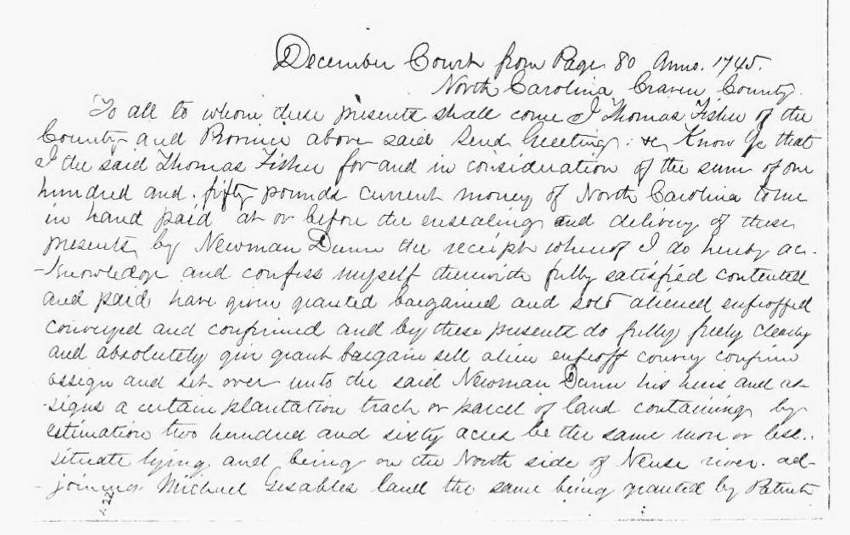 December Court from Page 80 Anno. 1745.
North Carolina Craven County.
To all to whom these presents shall come I Thomas Fisher of the
County and Province above said Send Greeting: &c Know Ye that
I the said Thomas Fisher for and in consideration of the sum of one
hundred and fifty pounds current money of North Carolina to me
in hand paid at or before the ensealing and delivery of these
presents by Newman Dunn the receipt whereof I do hereby ac-
-knowledge and confess myself therewith fully satisfied contented
and paid have given granted bargained and sold aliened enfeoffed
conveyed and confirmed and by these presents do fully freely clearly
and absolutely give grant bargain sell alien enfeoff convey confirm
assign and set over unto the said Newman Dunn his heirs and as-
-signs a certain plantation track or parcel of land containing by
estimation two hundred and sixty acres be the same more or less..
situate lying and being on the North side of Neuse river. ad-
-joining Michael land the same being granted by Patent